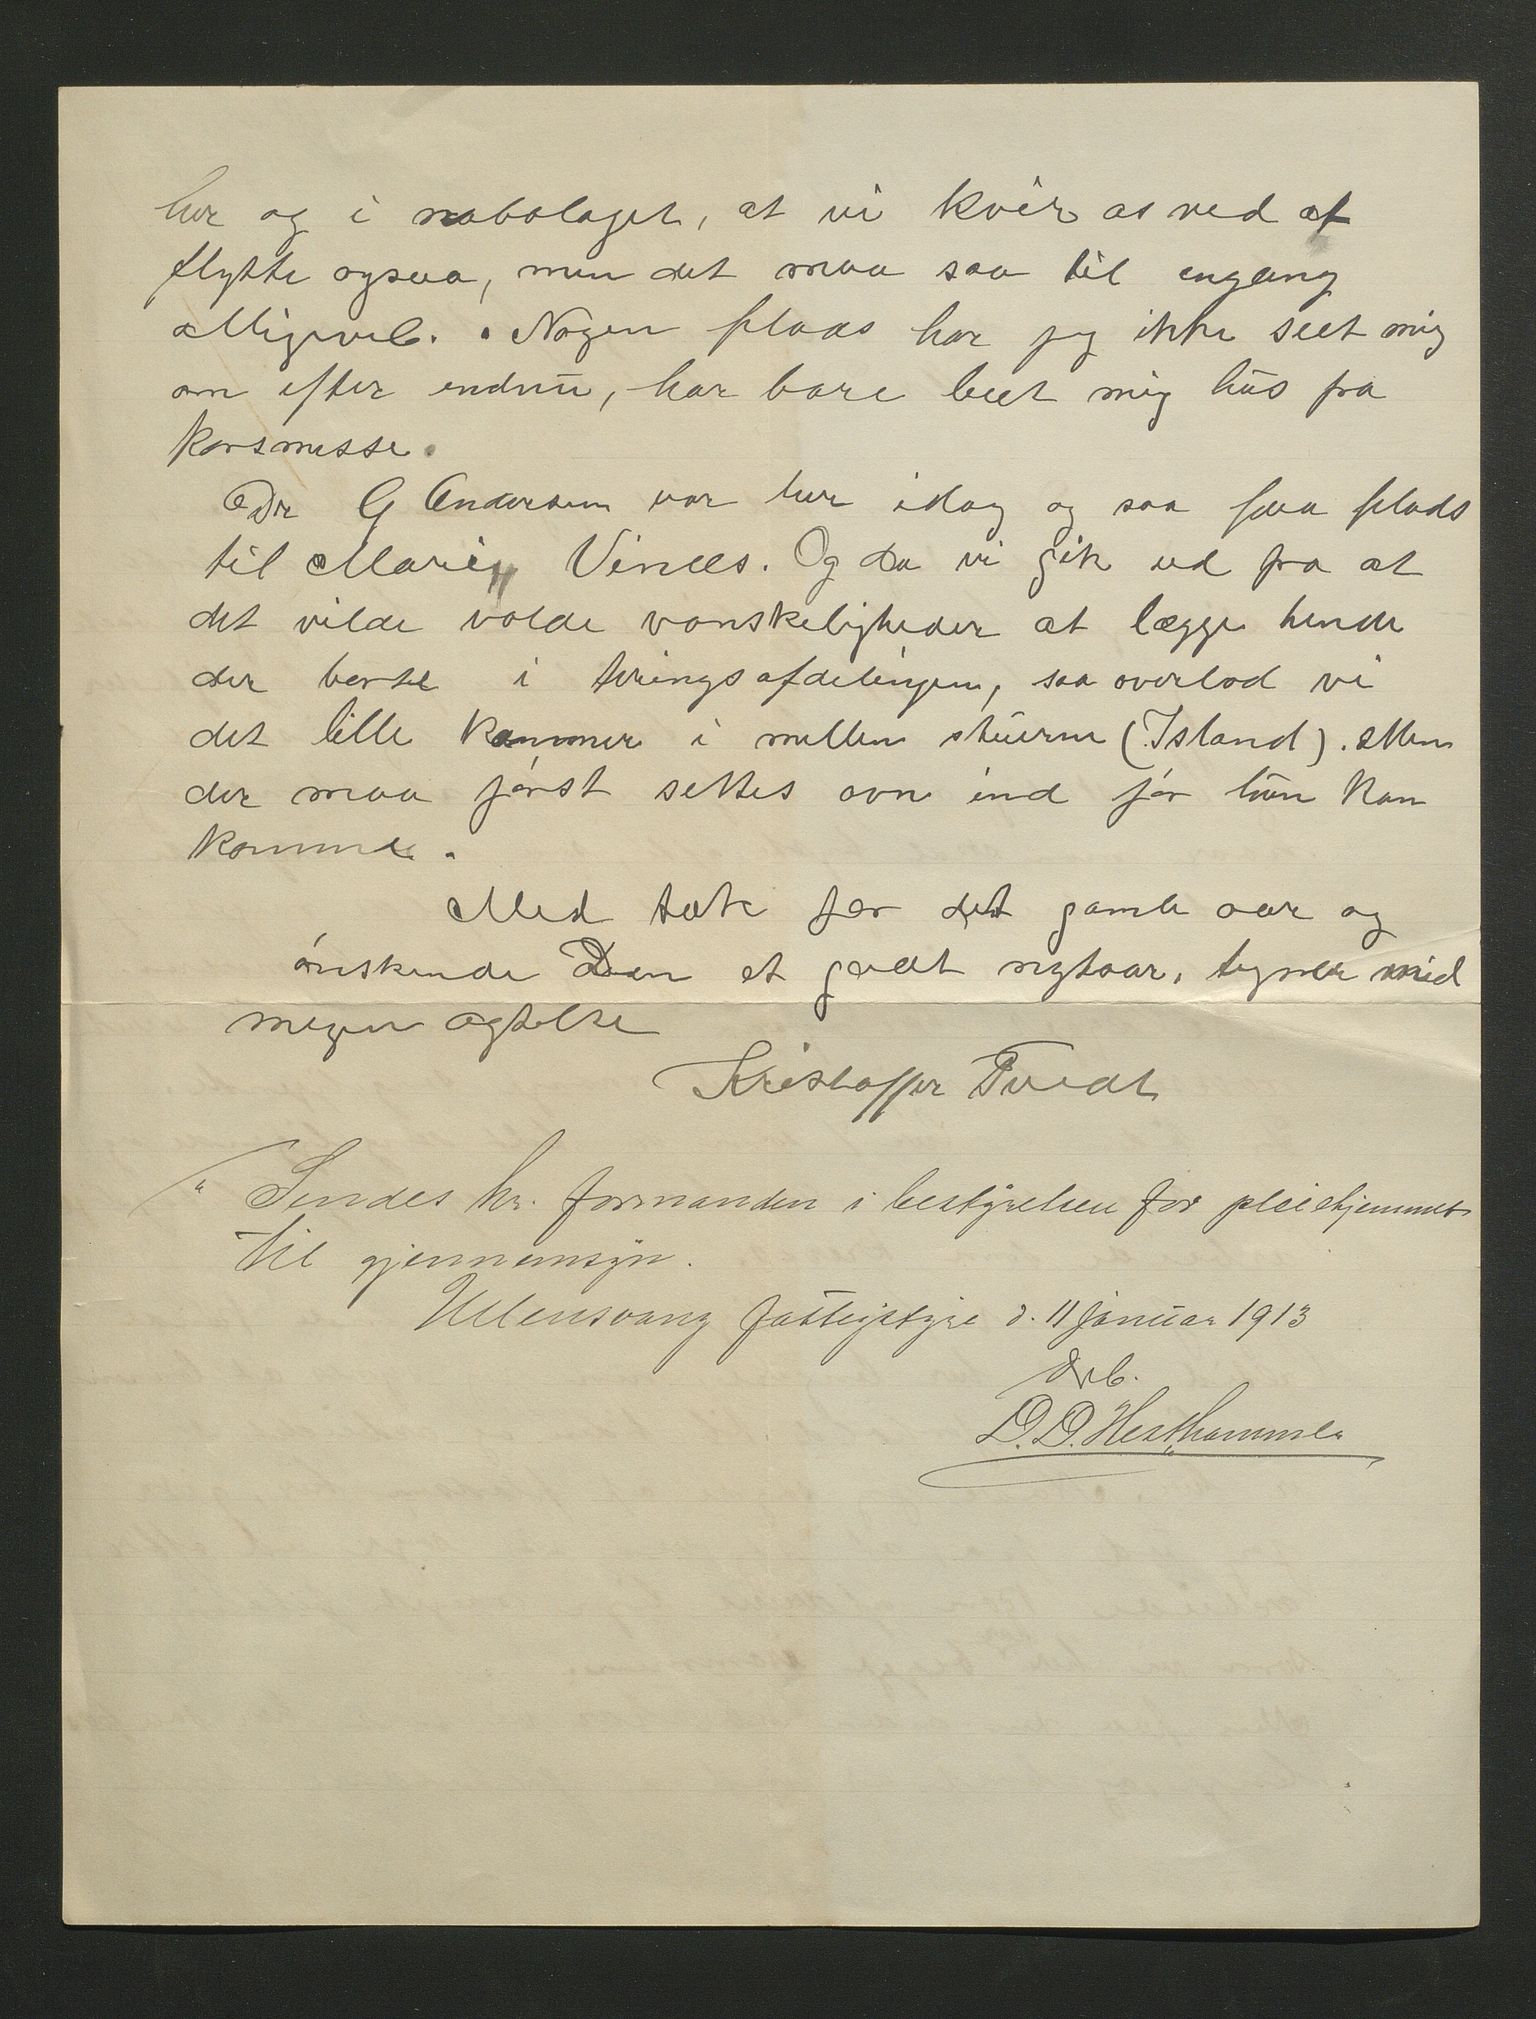 her og i nabolaget, at vi kvier os ved at
flytte ogsaa, men det maa saa til engang
alligevel. Nogen plads har jeg ikke seet mig
om efter endnu, har bare leiet mig hus fra
korsmesse.
Dr G Andersen var her idag og saa faa plads
til Marie Vinæs. Og da vi gik ud fra at
det vilde volde vanskeligheder at lægge hende
der borte i tæringsafdelingen, saa overlod vi
det lille kammer i mellem stuerne (Island). Men
der maa først settes ovn ind før hun kan
komme.
Med tak for det gamle aar og
ønskende Dem et godt nytaar, tegner med
megen agtelse
Kristoffer Tvedt
" Sendes hr. formanden i bestyrelsen for pleiehjemmet
til gjennemsyn.
Ullensvang fattigstyre d. 11 januar 1913
Erb.
D. D. Hesthammer